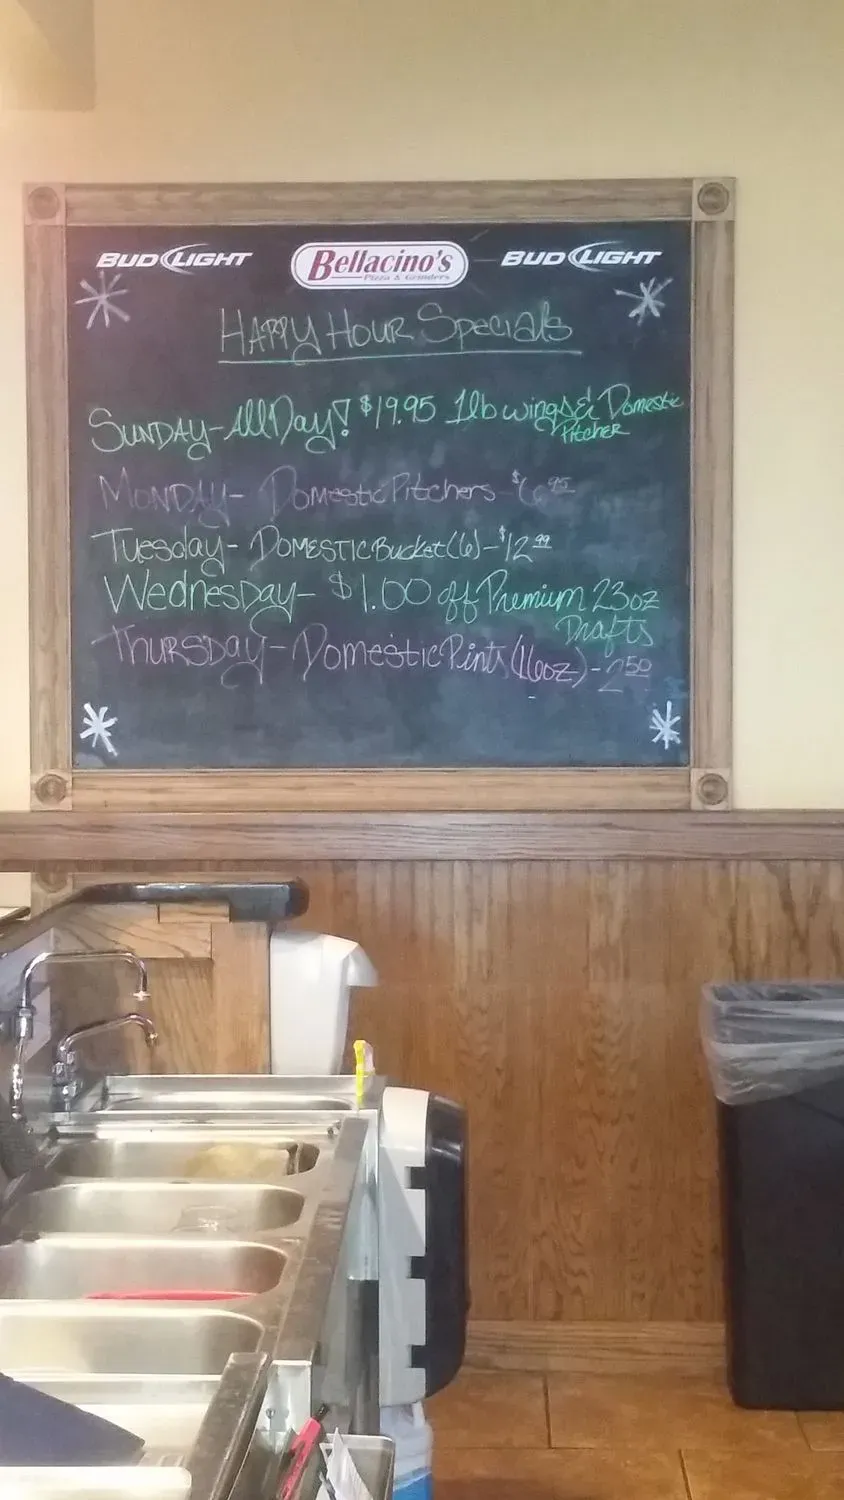 BUD LIGHT Bellacino's BUD LIGHT
Pizza & Grinders
Happy Hour Specials
Sunday - All Day! $19.95 1lb wings & Domestic
Pitcher
Monday - Domestic Pitchers - $6.95
Tuesday - Domestic Bucket (6) - $12.99
Wednesday - $1.00 off Premium 23oz
Drafts
Thursday - Domestic Pints (16oz) - 2.50